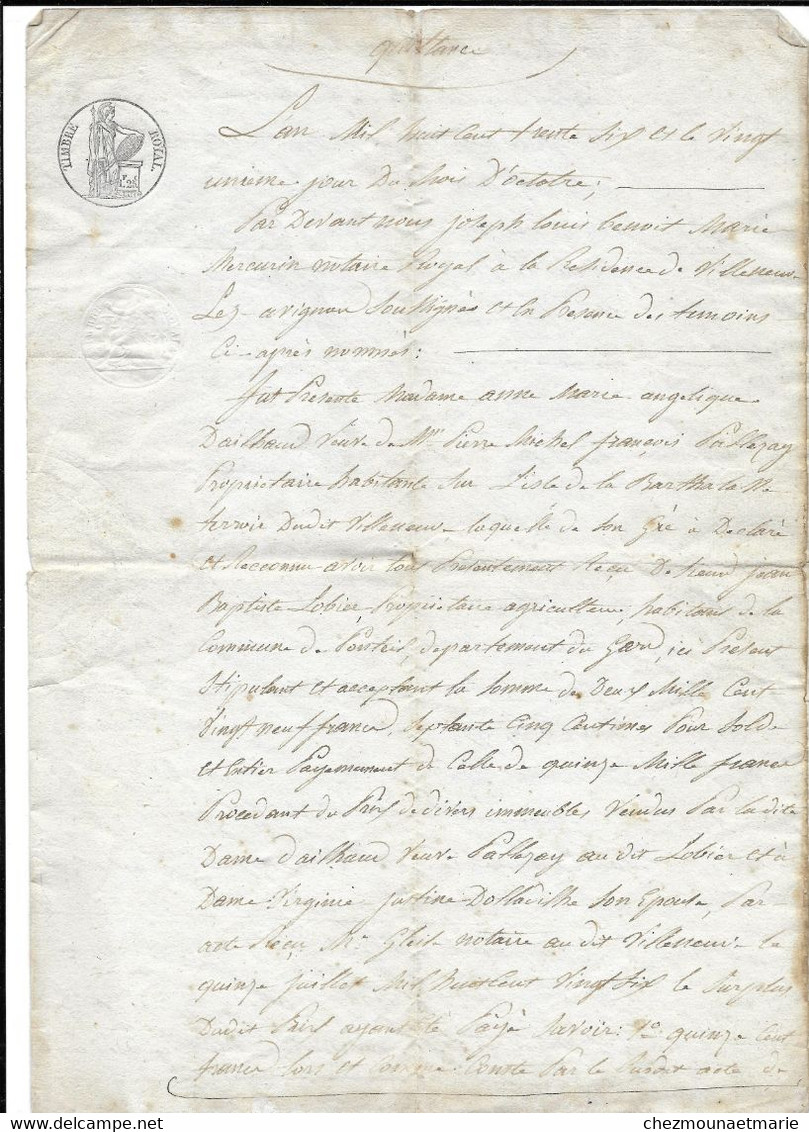 quittance
TIMBRE ROYAL
L'an Mil huit Cent trente six et le Vingt
unieme jour Du Mois D'octobre;
Par Devant nous joseph Louis benoit Marie
Mercurin notaire Royal à la Residence de Villeneuve
Lez-avignon Soussignés et en Presence des temoins
Ci-après nommés:
fut Presente Madame anne Marie angelique
Dailhaud Veuve de Mr Pierre Michel françois Pathezay
Proprietaire habitante Sur L'isle de la Barthalasse
terroir Dudit Villeneuve laquelle de Son Gré à Declaré
et Reconnu avoir tout Presentement Reçu De Sieur jean
Baptiste Lobier Proprietaire agriculteur, habitant de la
Commune de Ponteil, departement du Gard, ici Present
Stipulant et acceptant la Somme de Deux Mille Cent
Vingt neuf francs, Septante Cinq Centimes Pour Solde
et Entier Payemement de Celle de quinze Mille francs
Procedant du Prix de divers immeubles Vendus Par ladite
Dame d'ailhaud Veuve Pathezay audit Lobier et à
Dame Virginie justine Son Epouse, Par
acte Reçu Me notaire audit Villeneuve le
quinze juillet Mil huit Cent Vingt Six le Surplus
Dudit Prix ayant été Payé Savoir: 1o quinze Cent
francs lors et Comme Conste Par le Susdit acte de
chezmounaetmarie